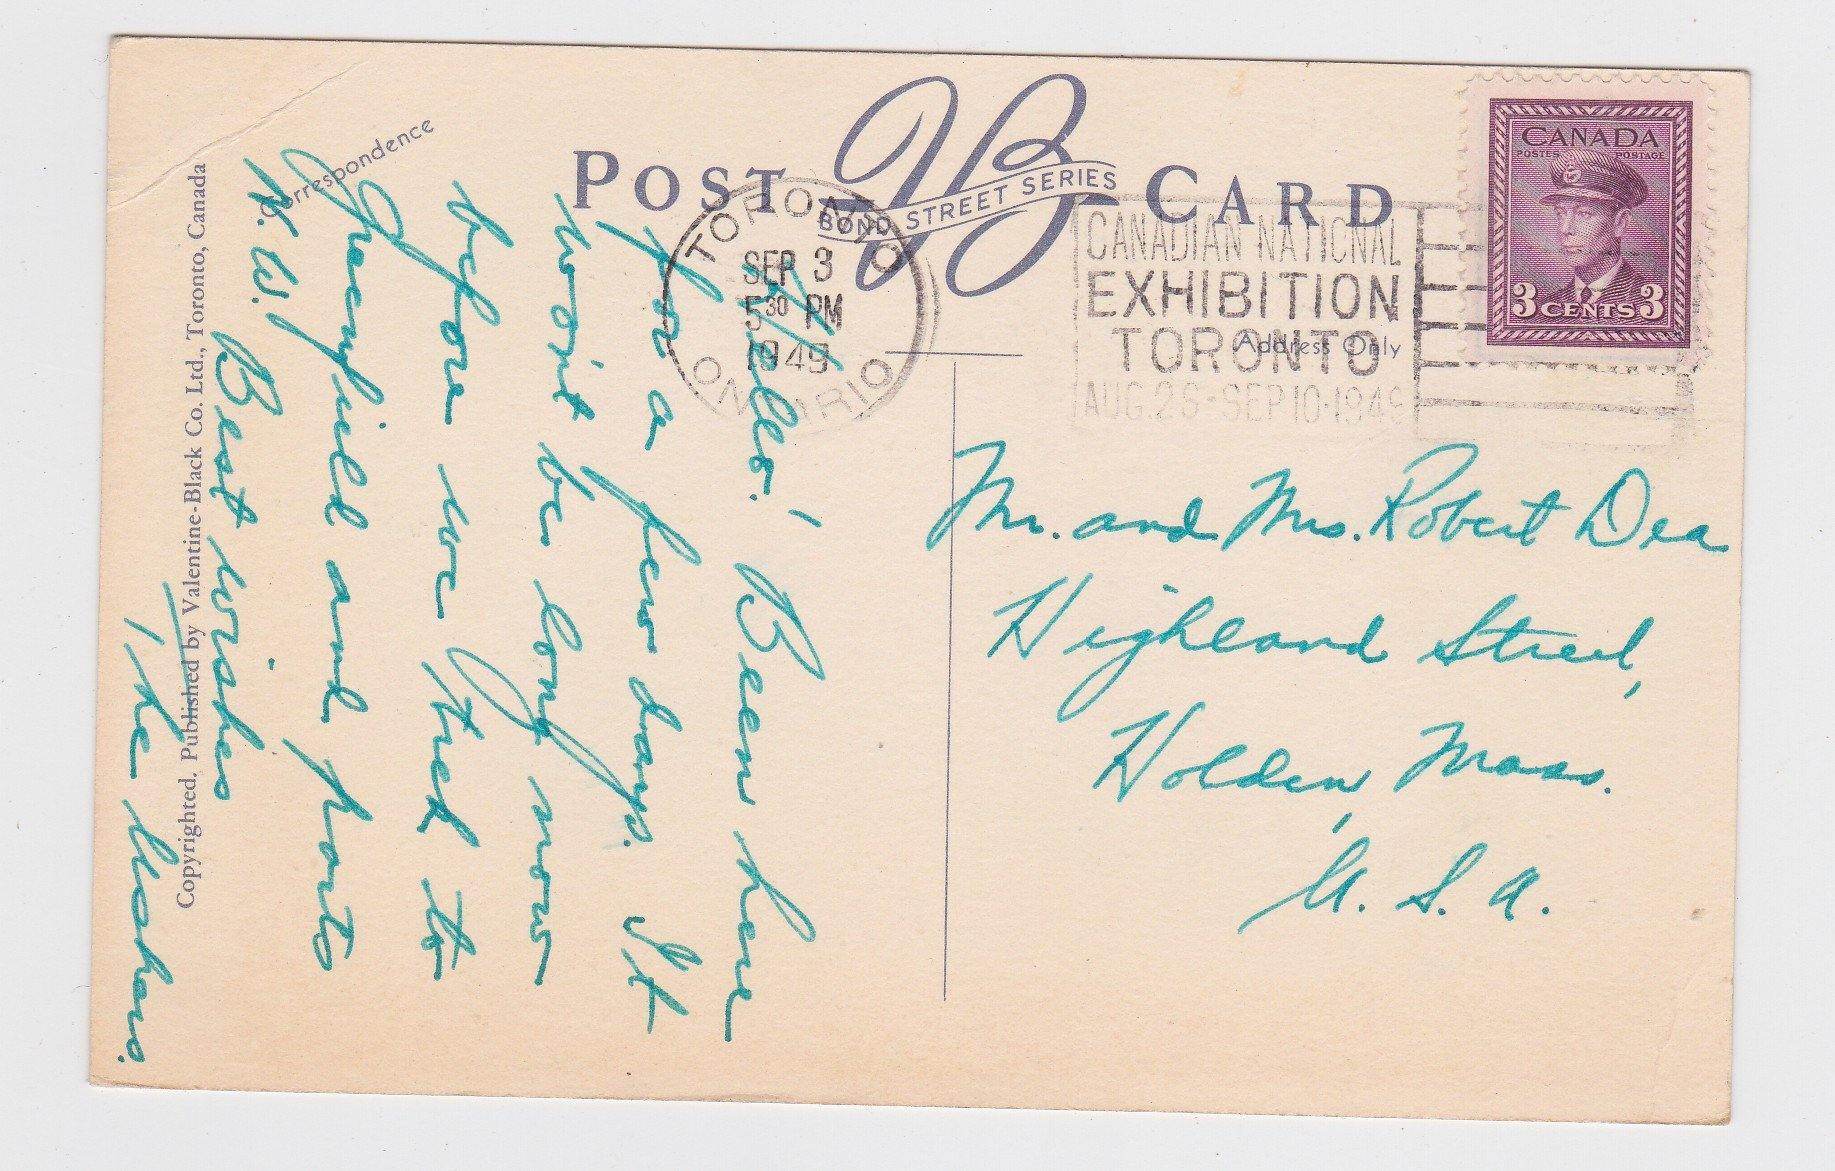 POST CARD
BOND STREET SERIES
Correspondence
Address Only
Copyrighted. Published by Valentine-Black Co. Ltd., Toronto, Canada
TORONTO
SEP 3
5 30 PM
1949
ONTARIO
CANADIAN NATIONAL
EXHIBITION
TORONTO
AUG.26-SEP10-1949
CANADA
POSTES POSTAGE
3 CENTS 3
Hello! Been here
for a few days. It
won't be long now
before we trek to
Greenfield and parts
N.W.
Best wishes
The
Mr. and Mrs. Robert Dea
Highland Street,
Holden, Mass.
U.S.A.